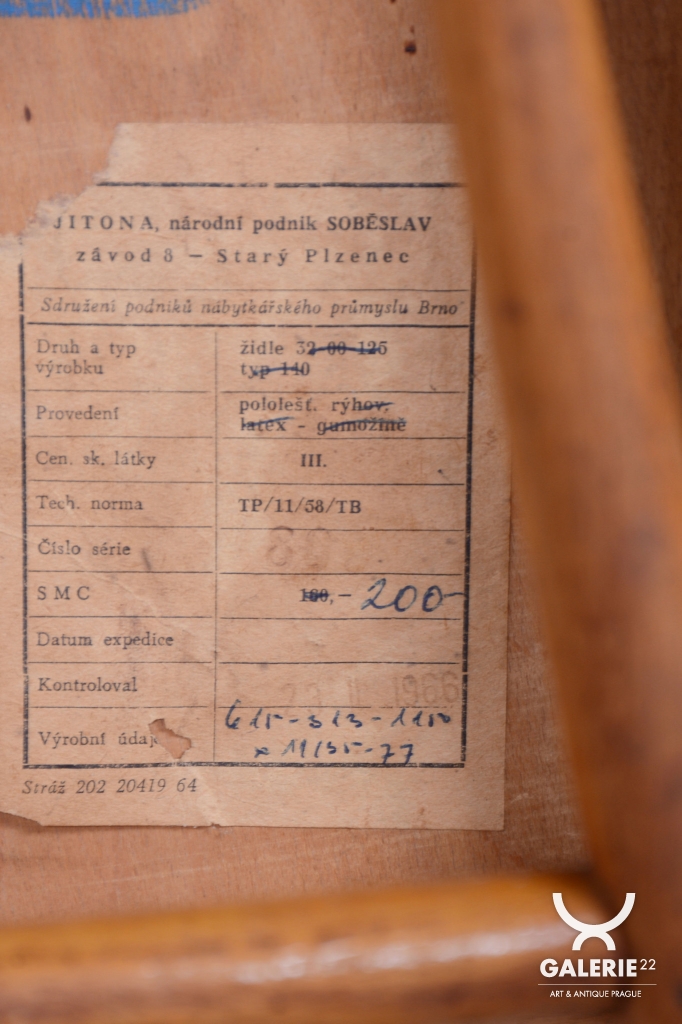 JITONA, národní podnik SOBĚSLAV
závod 8 — Starý Plzenec
Sdružení podniků nábytkářského průmyslu Brno
Druh a typ výrobku
židle 32-00-125
typ 140
Provedení
pololešť. rýhov.
latex - gumožíně
Cen. sk. látky
III.
Tech. norma
TP/11/58/TB
Číslo série
SMC
160,— 200-
Datum expedice
Kontroloval
1966
Výrobní údaj
615-313-1150
Stráž 202 20419 64
GALERIE 22
ART & ANTIQUE PRAGUE